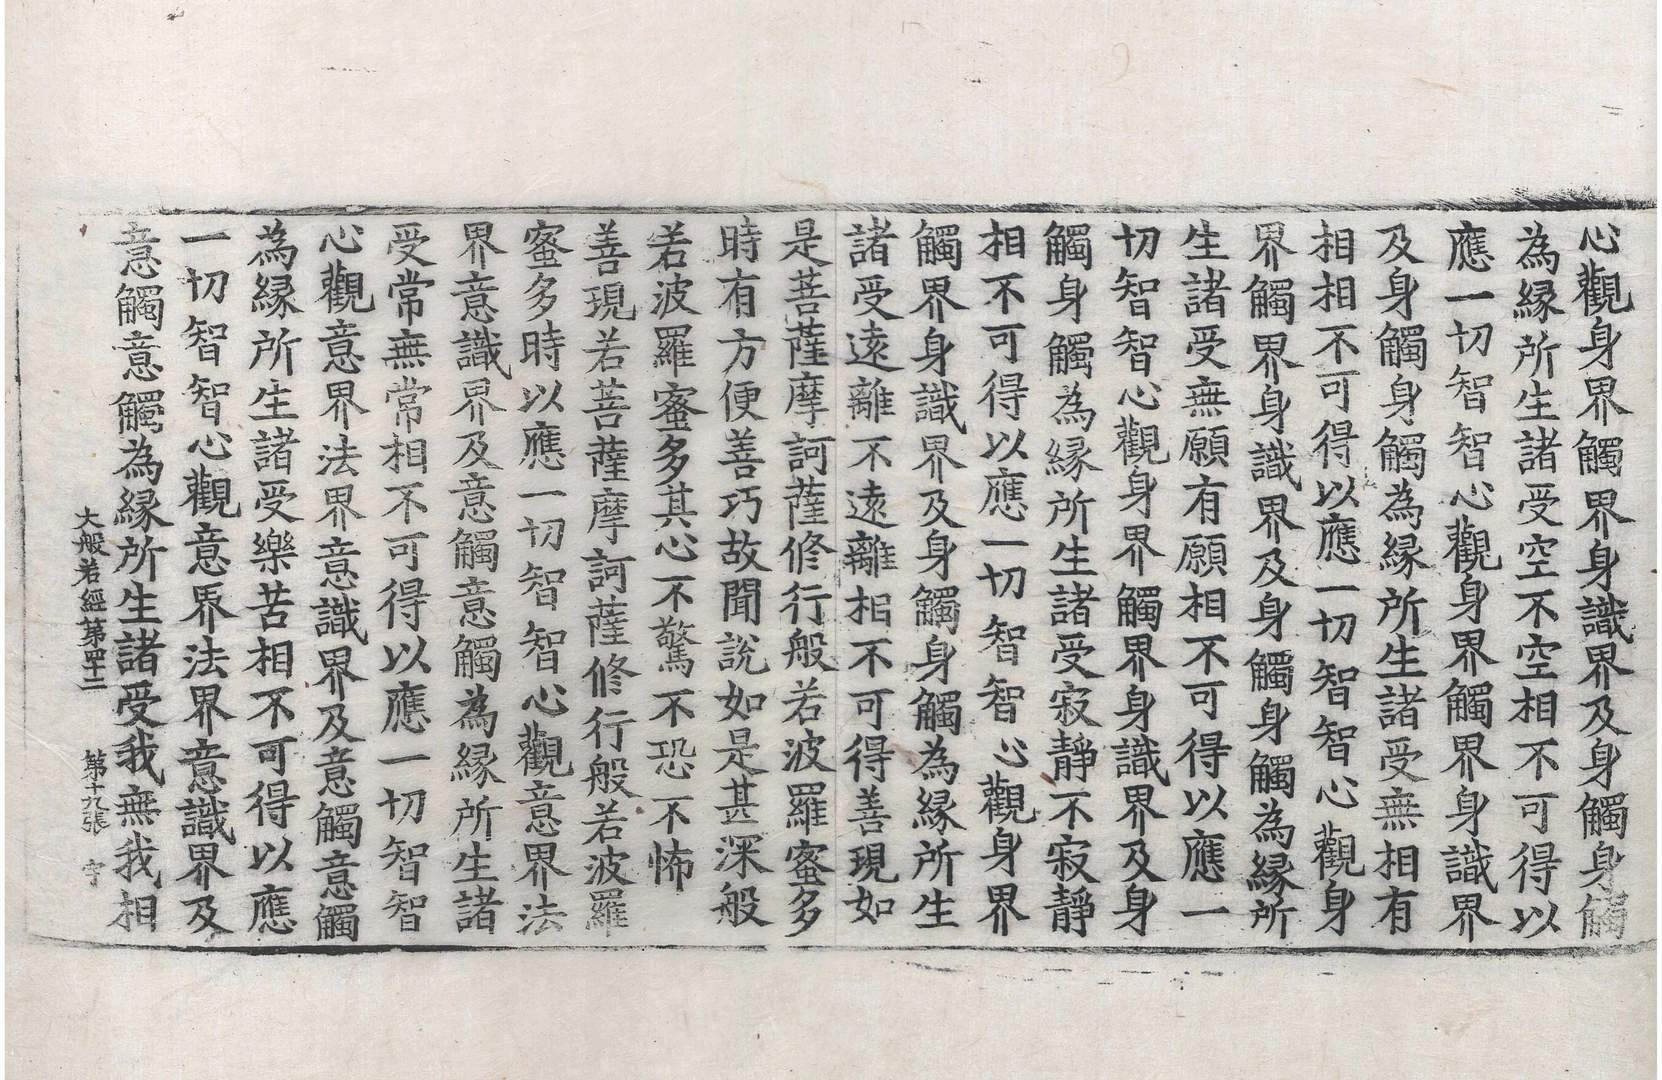 心觀身界觸界身識界及身觸身觸
為緣所生諸受空不空相不可得以
應一切智智心觀身界觸界身識界
及身觸身觸為緣所生諸受無相有
相相不可得以應一切智智心觀身
界觸界身識界及身觸身觸為緣所
生諸受無願有願相不可得以應一
切智智心觀身界觸界身識界及身
觸身觸為緣所生諸受寂靜不寂靜
相不可得以應一切智智心觀身界
觸界身識界及身觸身觸為緣所生
諸受遠離不遠離相不可得善現如
是菩薩摩訶薩修行般若波羅蜜多
時有方便善巧故聞說如是甚深般
若波羅蜜多其心不驚不恐不怖
善現若菩薩摩訶薩修行般若波羅
蜜多時以應一切智智心觀意界法
界意識界及意觸意觸為緣所生諸
受常無常相不可得以應一切智智
心觀意界法界意識界及意觸意觸
為緣所生諸受樂苦相不可得以應
一切智智心觀意界法界意識界及
意觸意觸為緣所生諸受我無我相
大般若經第四十二 第十九張